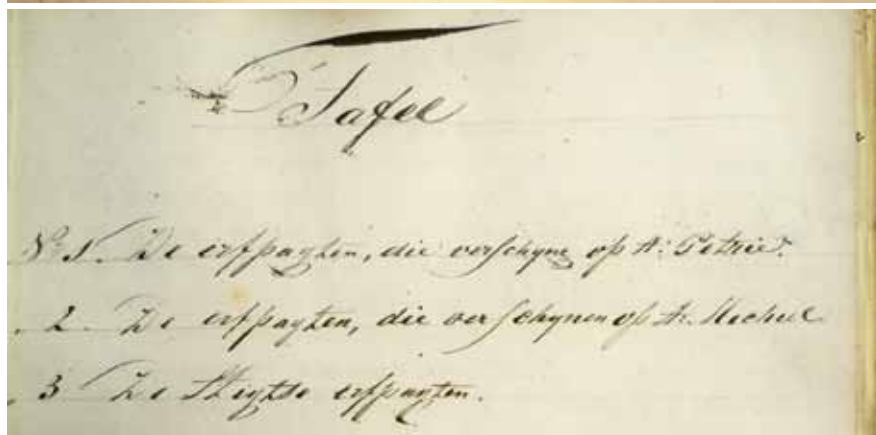 Tafel
N:º 1. De erfpagten, die verschyne op St: Petrie.
, 2. De erfpagten, die verschynen op St. Mechiel
, 3 De erfpagten.